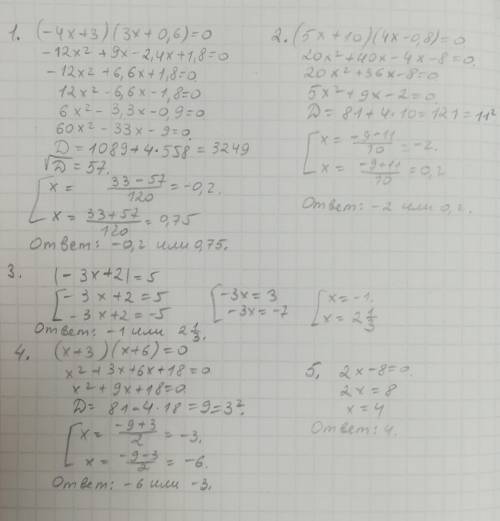 1. (-4x+3)(3x+0,6)=0
-12x²+9x-2,4x+1,8=0
-12x²+6,6x+1,8=0
12x²-6,6x-1,8=0
6x²-3,3x-0,9=0
60x²-33x-9=0.
D=1089+4·558=3249
√D=57.
x= 33-57/120 =-0,2.
x= 33+57/120 =0,75
Ответ: -0,2 или 0,75.
2. (5x+10)(4x-0,8)=0
20x²+40x-4x-8=0.
20x²+36x-8=0.
5x²+9x-2=0.
D=81+4·10=121=11²
x= -9-11/10 =-2.
x= -9+11/10 =0,2
Ответ: -2 или 0,2.
3. |-3x+2|=5
-3x+2=5 -3x=3 x=-1.
-3x+2=-5 -3x=-7 x=2 1/3
Ответ: -1 или 2 1/3.
4. (x+3)(x+6)=0
x²+3x+6x+18=0
x²+9x+18=0.
D=81-4·18=9=3².
x= -9+3/2 =-3.
x= -9-3/2 =-6.
Ответ: -6 или -3.
5, 2x-8=0.
2x=8
x=4
Ответ: 4.